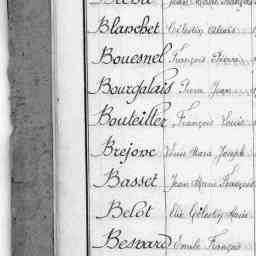 Blanchet Célestin
Bouesnel François Pierre
Bourgalais Pierre Jean
Bouteiller François Louis
Brejone Louis Marie Joseph
Basset Jean Marie François
Belot Elie Célestin Marie
Besnard Emile François